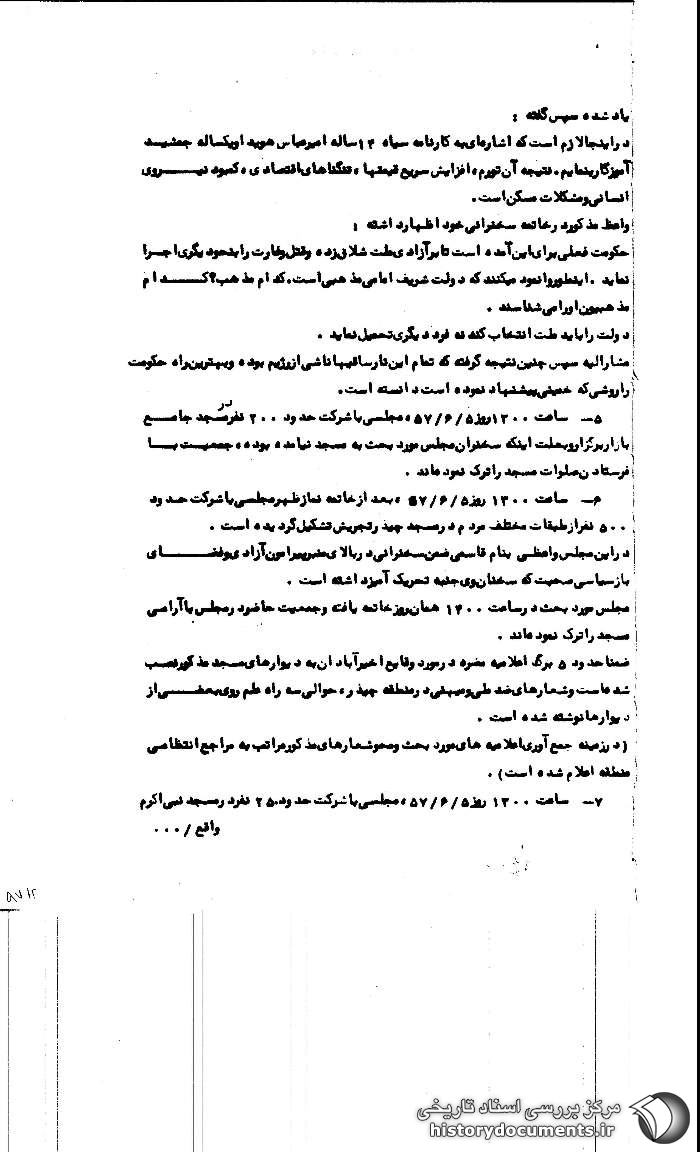 یاد شده سپس گفته :
در اینجا لازم است که اشاره‌ای به کارنامه سیاه ۱۴ ساله امیرعباس هویدا و یکساله جمشید
آموزگار بنمایم ، نتیجه آن تورم ، افزایش سریع قیمتها ، تنگناهای اقتصادی ، کمبود نیروی
انسانی و مشکلات مسکن است .
واعظ مذکور در خاتمه سخنرانی خود اظهار داشته :
حکومت فعلی برای این آمده است تا بر آزادی ملت شلاق زده و قتل و غارت را بنحو دیگری اجرا
نماید . اینطور وانمود میکنند که دولت شریف امامی مذهبی است ، کدام مذهب ؟ کدام
مذهبیون او را می شناسند .
دولت را باید ملت انتخاب کند نه فرد دیگری تحمیل نماید .
مشارالیه سپس چنین نتیجه گرفته که تمام این نارسائیها ناشی از رژیم بوده و بهترین راه حکومت
را روشی که خمینی پیشنهاد نموده است دانسته است .
۵- ساعت ۱۳۰۰ روز ۵/۶/۵۷ ، مجلسی با شرکت حدود ۲۰۰ نفر در مسجد جامع
بازار برگزار و بعلت اینکه سخنران مجلس مورد بحث به مسجد نیامده بوده ، جمعیت با
فرستادن صلوات مسجد را ترک نموده‌اند .
۶- ساعت ۱۳۰۰ روز ۵/۶/۵۷ ، بعد از خاتمه نماز ظهر مجلسی با شرکت حدود
۵۰۰ نفر از طبقات مختلف مردم در مسجد چیذر تجریش تشکیل گردیده است .
در این مجلس واعظی بنام قاسمی ضمن سخنرانی در بالای منبر پیرامون آزادی و فضای
باز سیاسی صحبت که سخنان وی جنبه تحریک آمیز داشته است .
مجلس مورد بحث در ساعت ۱۴۰۰ همان روز خاتمه یافته و جمعیت حاضر در مجلس با آرامی
مسجد را ترک نموده‌اند .
ضمنا حدود ۵ برگ اعلامیه مضره در مورد وقایع اخیر آبادان به دیوارهای مسجد مذکور نصب
شده است و شعارهای ضد ملی و میهنی در منطقه چیذر ، حوالی سه راه علم روی بعضی از
دیوارها نوشته شده است .
(در زمینه جمع آوری اعلامیه های مورد بحث و محو شعارهای مذکور مراتب به مراجع انتظامی
منطقه اعلام شده است) .
۷- ساعت ۱۳۰۰ روز ۵/۶/۵۷ ، مجلسی با شرکت حدود ۲۵۰ نفر در مسجد نبی اکرم
واقع / ۰۰۰
مرکز بررسی اسناد تاریخی
historydocuments.ir